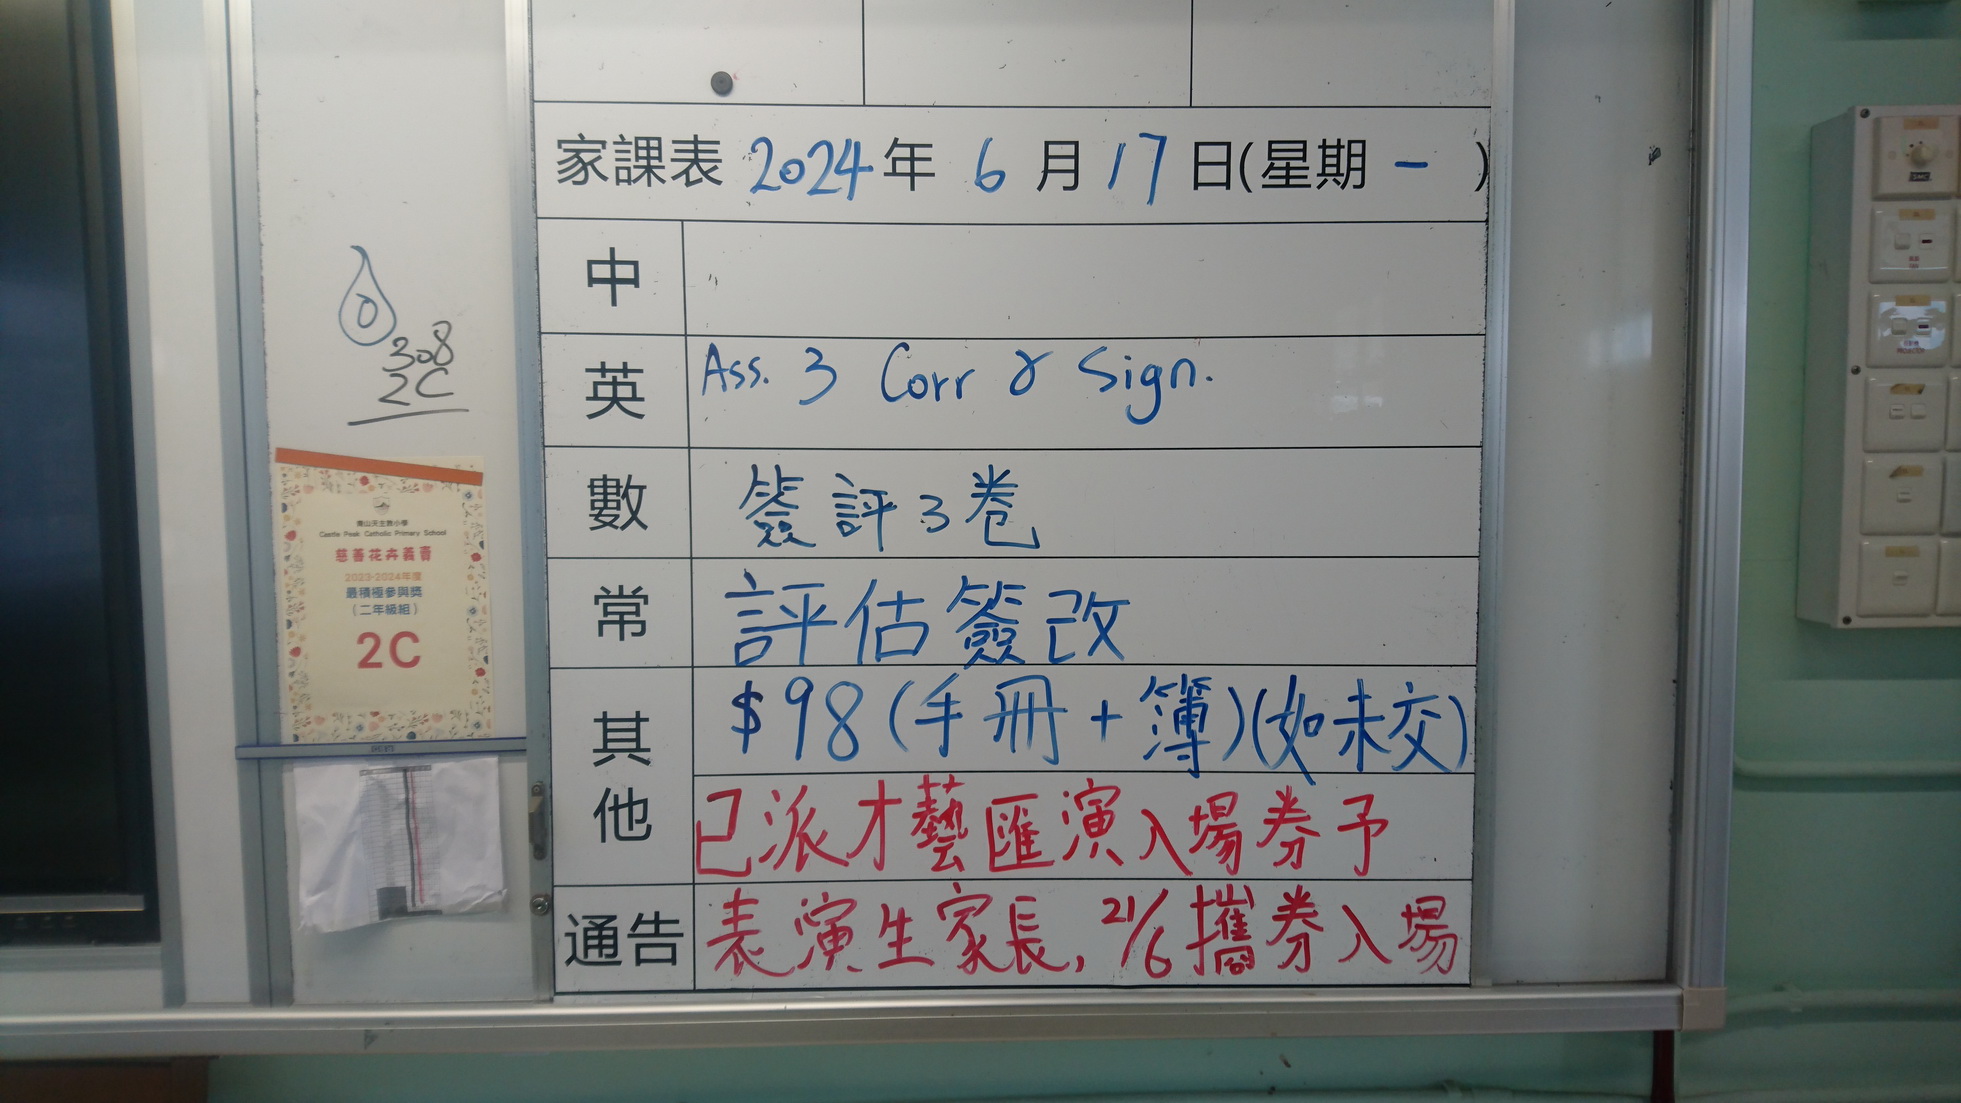 家課表 2024年 6月17日(星期一)
中
英 Ass. 3 Corr & Sign.
數 簽評3卷
常 評估簽改
其他 $98(手冊+簿)(如未交)
已派才藝匯演入場券予
通告 表演生家長, 21/6攜券入場
0
308
2C
青山天主教小學
Castle Peak Catholic Primary School
慈善花卉義賣
2023-2024年度
最積極參與獎
(二年級組)
2C